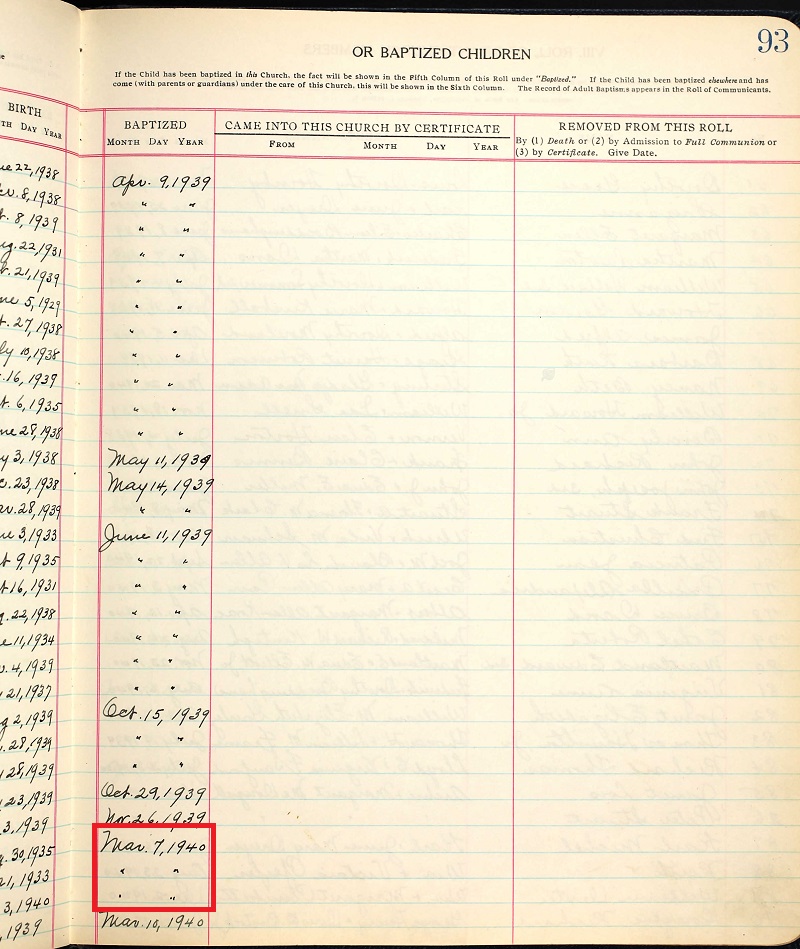 93
OR BAPTIZED CHILDREN
If the Child has been baptized in this Church, the fact will be shown in the Fifth Column of this Roll under "Baptized." If the Child has been baptized elsewhere and has
come (with parents or guardians) under the care of this Church, this will be shown in the Sixth Column. The Record of Adult Baptisms appears in the Roll of Communicants.
BIRTH BAPTIZED CAME INTO THIS CHURCH BY CERTIFICATE REMOVED FROM THIS ROLL
TH DAY YEAR MONTH DAY YEAR FROM MONTH DAY YEAR By (1) Death or (2) by Admission to Full Communion or
(3) by Certificate. Give Date.
ne 22, 1938 Apr. 9, 1939
v. 8, 1938 " "
t. 8, 1939 " "
g. 22, 1931 " "
r. 21, 1939 " "
ne 5, 1929 " "
t. 27, 1938 " "
ly 10, 1938 " "
. 16, 1939 " "
t. 6, 1935 " "
ne 28, 1938 " "
y 3, 1938 May 11, 1939
c. 23, 1938 May 14, 1939
v. 28, 1939 " "
ne 3, 1933 June 11, 1939
t 9, 1935 " "
t 16, 1931 " "
g. 22, 1938 " "
e 11, 1934 " "
v. 4, 1939 " "
y 21, 1937 " "
g 2, 1939 Oct. 15, 1939
. 28, 1939 " "
y 28, 1939 " "
y 23, 1939 Oct. 29, 1939
. 3, 1939 Nov. 26, 1939
g. 30, 1935 Mar. 7, 1940
21, 1933 " "
3, 1940 " "
, 1939 Mar. 10, 1940